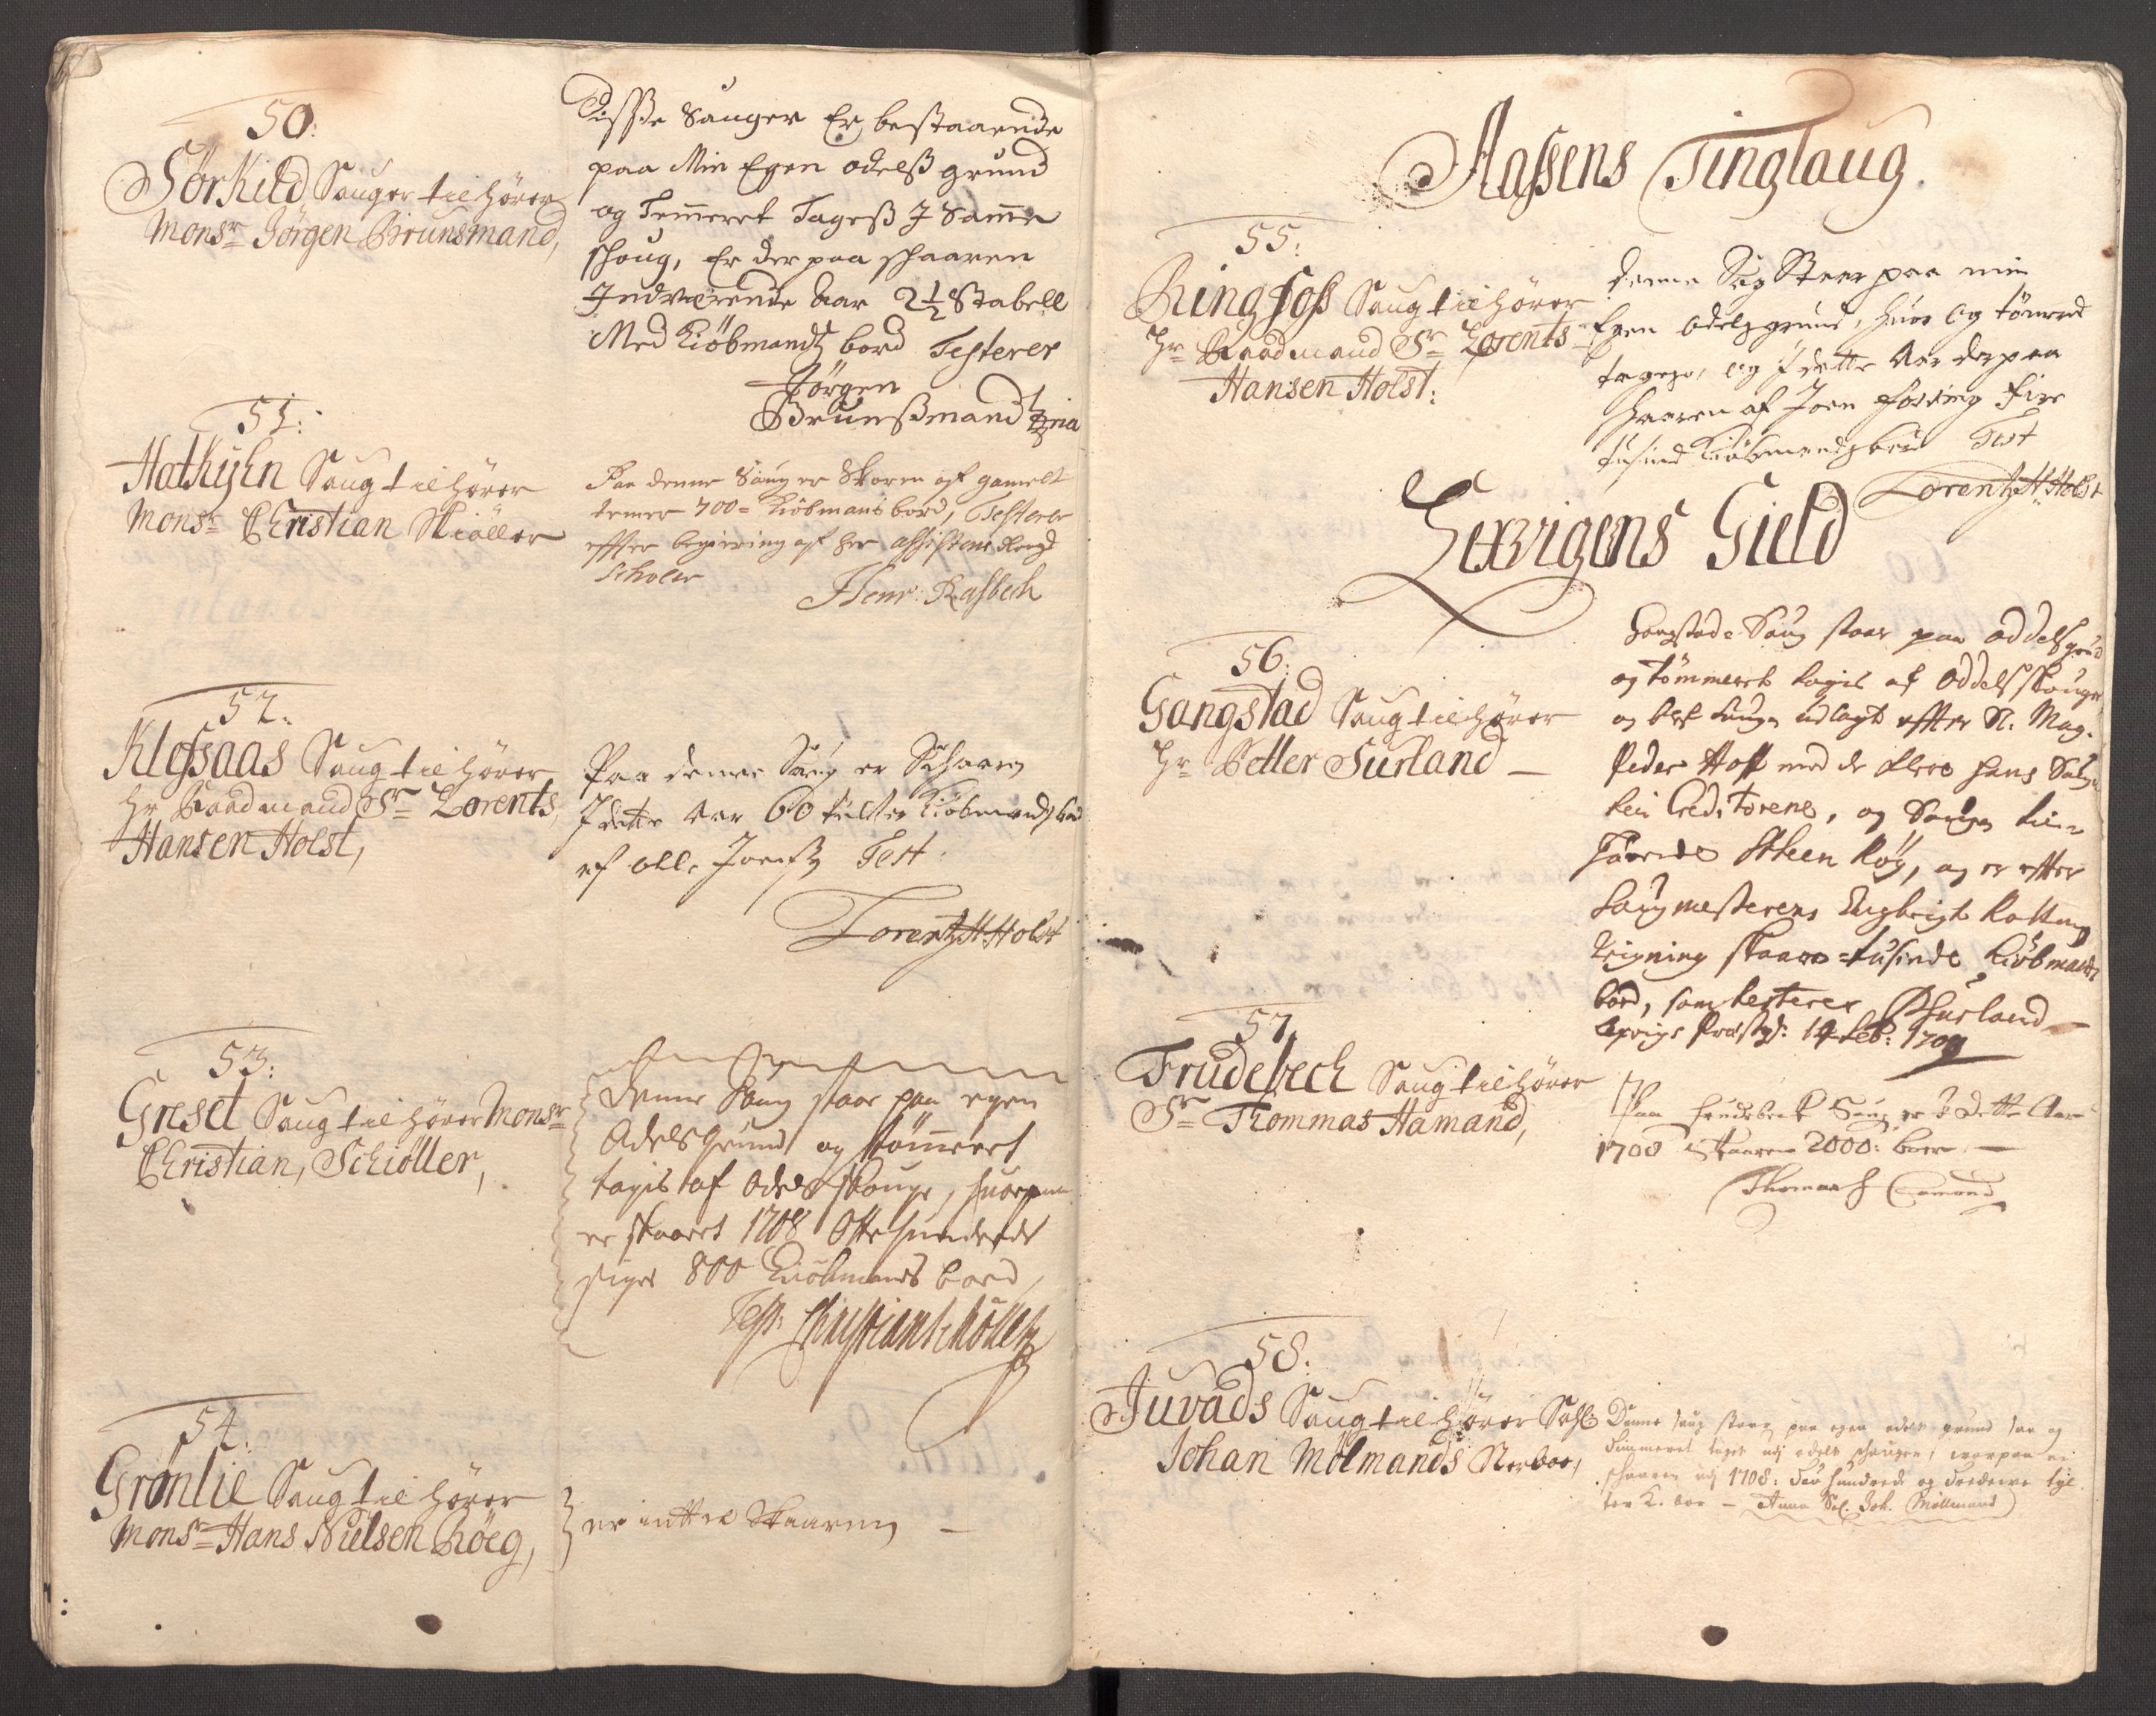 50:
Sørkild Sauger tilhører
Monsr Jørgen Brunsmand,
Disse Sauger Er bestaaende
paa Min Egen odelß grund
og Temeret Tageß J Samme
schoug, Er der paa schaaren
Indværende Aar 2½ Stabell
Med Kiöbmandtz bord Testerer
Jörgen
Brunßmandtz
51:
Hathyln Saug tilhører
Monsr Christian Skiøller
Paa denne Saug er Skoren af gamelt
temer 700= Kiöbmans bord, Testerer
effter begiering af her assistent
Schøler
Henr: Rasbech
52.
Klefsaas Saug tilhører
Hr Raadmand Sr Lorents
Hansen Holst,
Paa denne Saug er Schaaren
J dette Aar 60 tylter Kiöbmandz bord
af olle Joenß Test
Lorentz H Holst
53:
Greset Saug tilhører Monsr
Christian Schiøller,
Denne Saug staar paa egen
Odels Grund og tömmert
tagis af Odels skouge, huorpaa
er skaaret 1708 Otte hundrede
siger 800 Kiöbmands bord,
Test. Christian Schøller
54:
Grønlie Saug tilhører
Monsr Hans Nielsen Røeg,
er intted Skaaren –
Aassens Tinglaug.
55:
Ringfoss Saug tilhører
Hr Raadmand Sr Lorents
Hansen Holst:
denne Sag Staar paa min
Egen odelz grund, huor og tömeret
tages, og J dette Aar derpaa
schaaren af Joen fossing fire
tusind Kiöbmandz bord Test
Lorentz H Holst
Lexvigens Gield
56:
Gangstad Saug tilhører
Hr Petter Juuland –
Gangstad Saug staar paa oddelsgrund
og tömmeret tagis af Oddelsskouge
og blef Saugen udlagt effter Sl. Mag.
Peder Hoff med de flere hans
Creditorene, og Saugen
Steen Røg, og er efter
Saugmesterens Engbrigt
Reigning skaaren = tusinde Kiöbmands
bord, som testerer PJuuland
Lexvigs Præstgd: 14 Feb: 1709
57
Frudebech Saug tilhører
Sr Thommas Hamand,
Paa Frudebech Saug er J dette Aar
1708 skaaren 2000: bord –
Thomas Hamand
58:
Juvads Saug tilhører Sahl
Johan Mølmands Sterboe,
Denne saug staar paa egen odels grund saa og
Timmeret tages udj odels schougen, hvorpaa er
schaaren udj 1708: hundrede og tredeve tyl
ter K. bor – Anna Sal. Joh. Möllmand